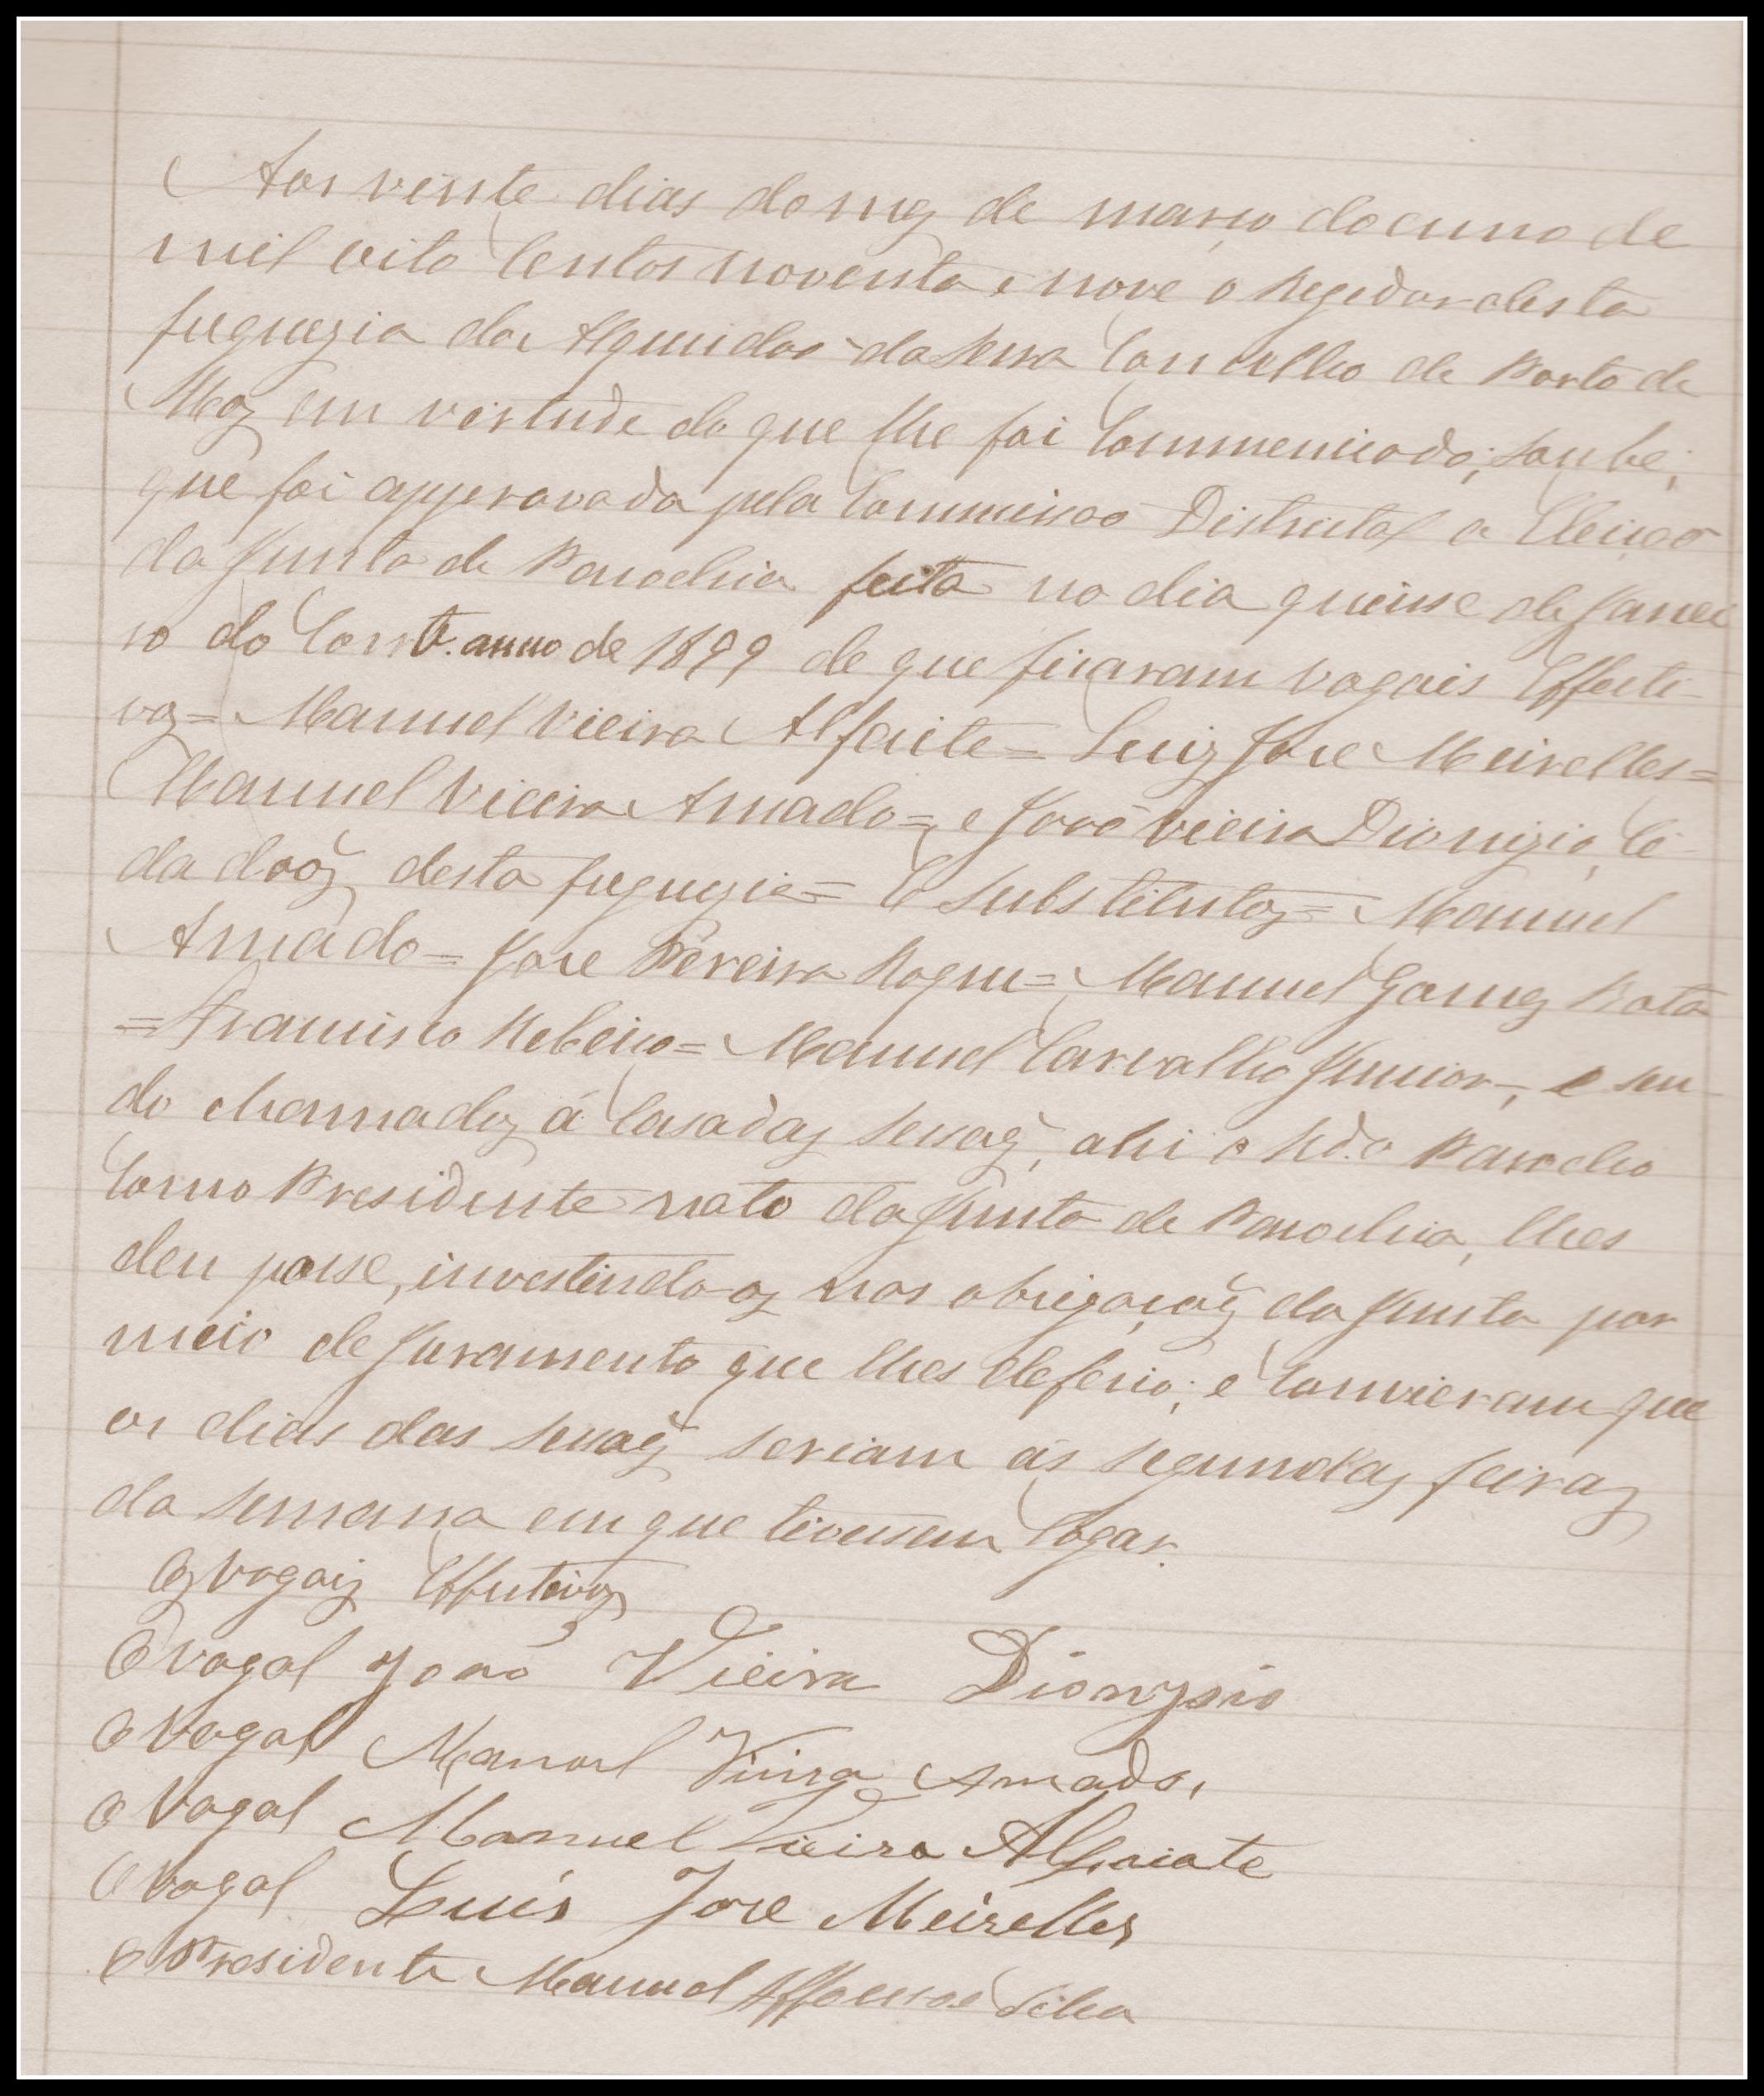 Aos vinte dias do mez de março do anno de
mil oito Centos noventa e nove o Regedor desta
freguezia da Alqueidão da Serra Concelho de Porto de
Moz em virtude do que lhe foi Communicado; soube;
que foi approvada pela Commissão Districtal a Eleição
da Junta de Parochia feita no dia quinse de Janei
ro do Corrte. anno de 1899 de que ficaram vogais Effecti-
voz = Manuel Vieira Alfaite = Luiz Jose Meirelles =
Manuel Vieira Amado = e João Vieira Dionizio, Ci-
dadãoz desta freguezia = E substitutoz = Manuel
Amado = Jose Pereira Roque = Manuel Gomez Rato
= Francisco Rebeiro = Manuel Carvalho Junior -, e sen-
do chamadoz á Casa daz sessoẽz, ahi o Rdo Parocho
Como Presidente nato da Junta de Parochia, lhes
deu posse, investindo-oz nas obrigaçoẽz da Junta por
meio de Juramento que lhes deferio; e Convieram que
os dias das sessoẽz seriam ás segundaz feiraz
da semana em que tivessem logar.
Oz vogaiz Effectivoz
O vogal João Vieira Dionyzio
O Vogal Manoel Vieira Amado,
O Vogal Manuel Vieira Alfaiate
O Vogal Luís Jose Meirelles
O Presidente Manuel Affonso Silva